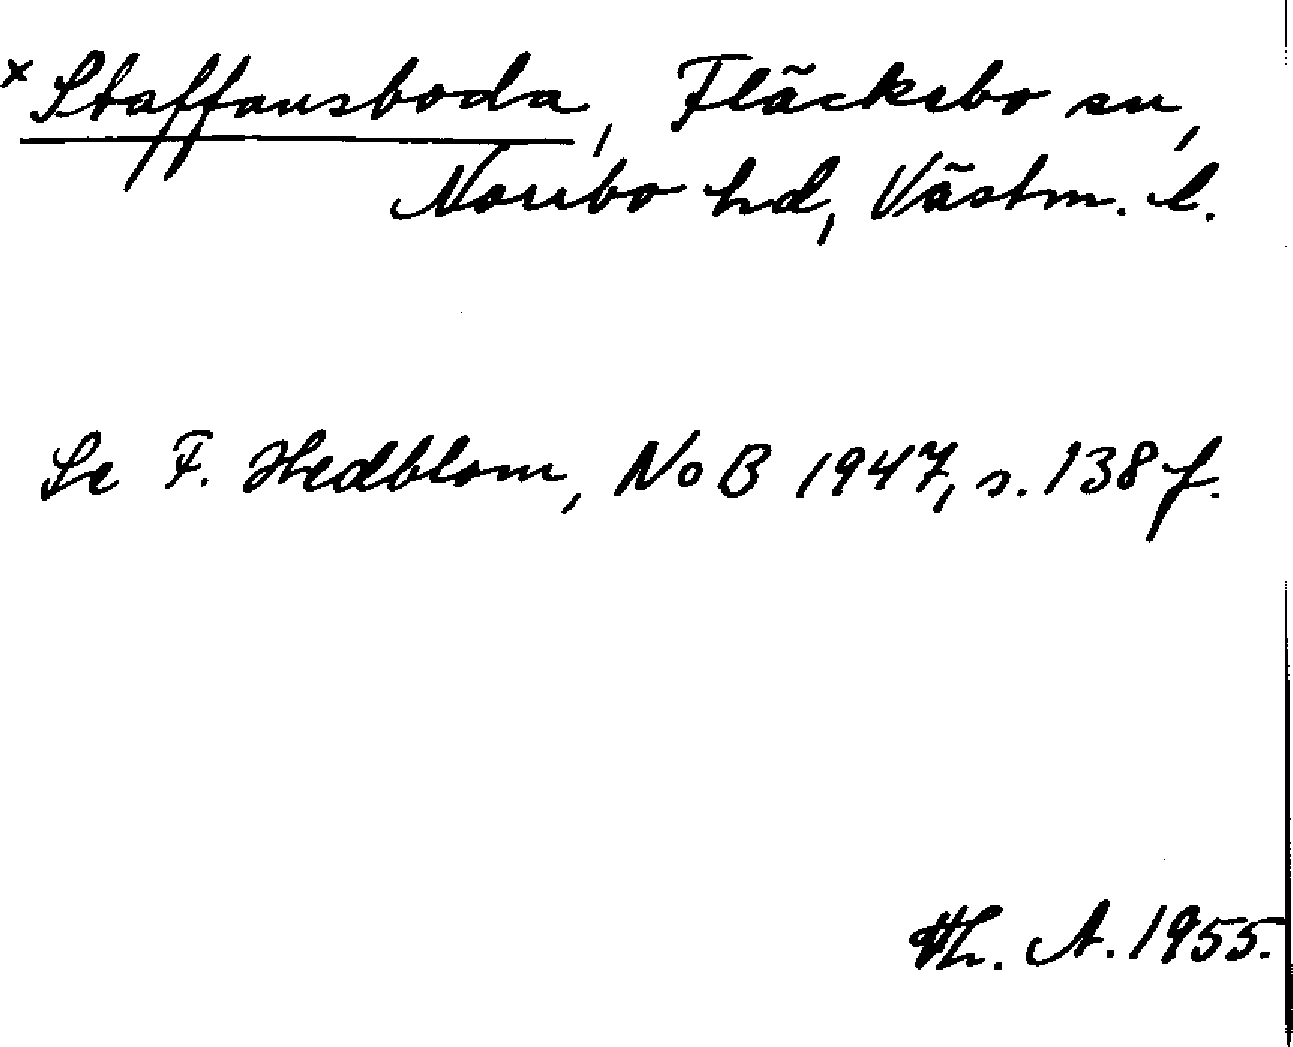 × Staffansboda, Fläckebo sn,
Norrbo hd, Västm. l.
Se F. Hedblom, NoB 1947, s. 138 f.
Th. A. 1955.